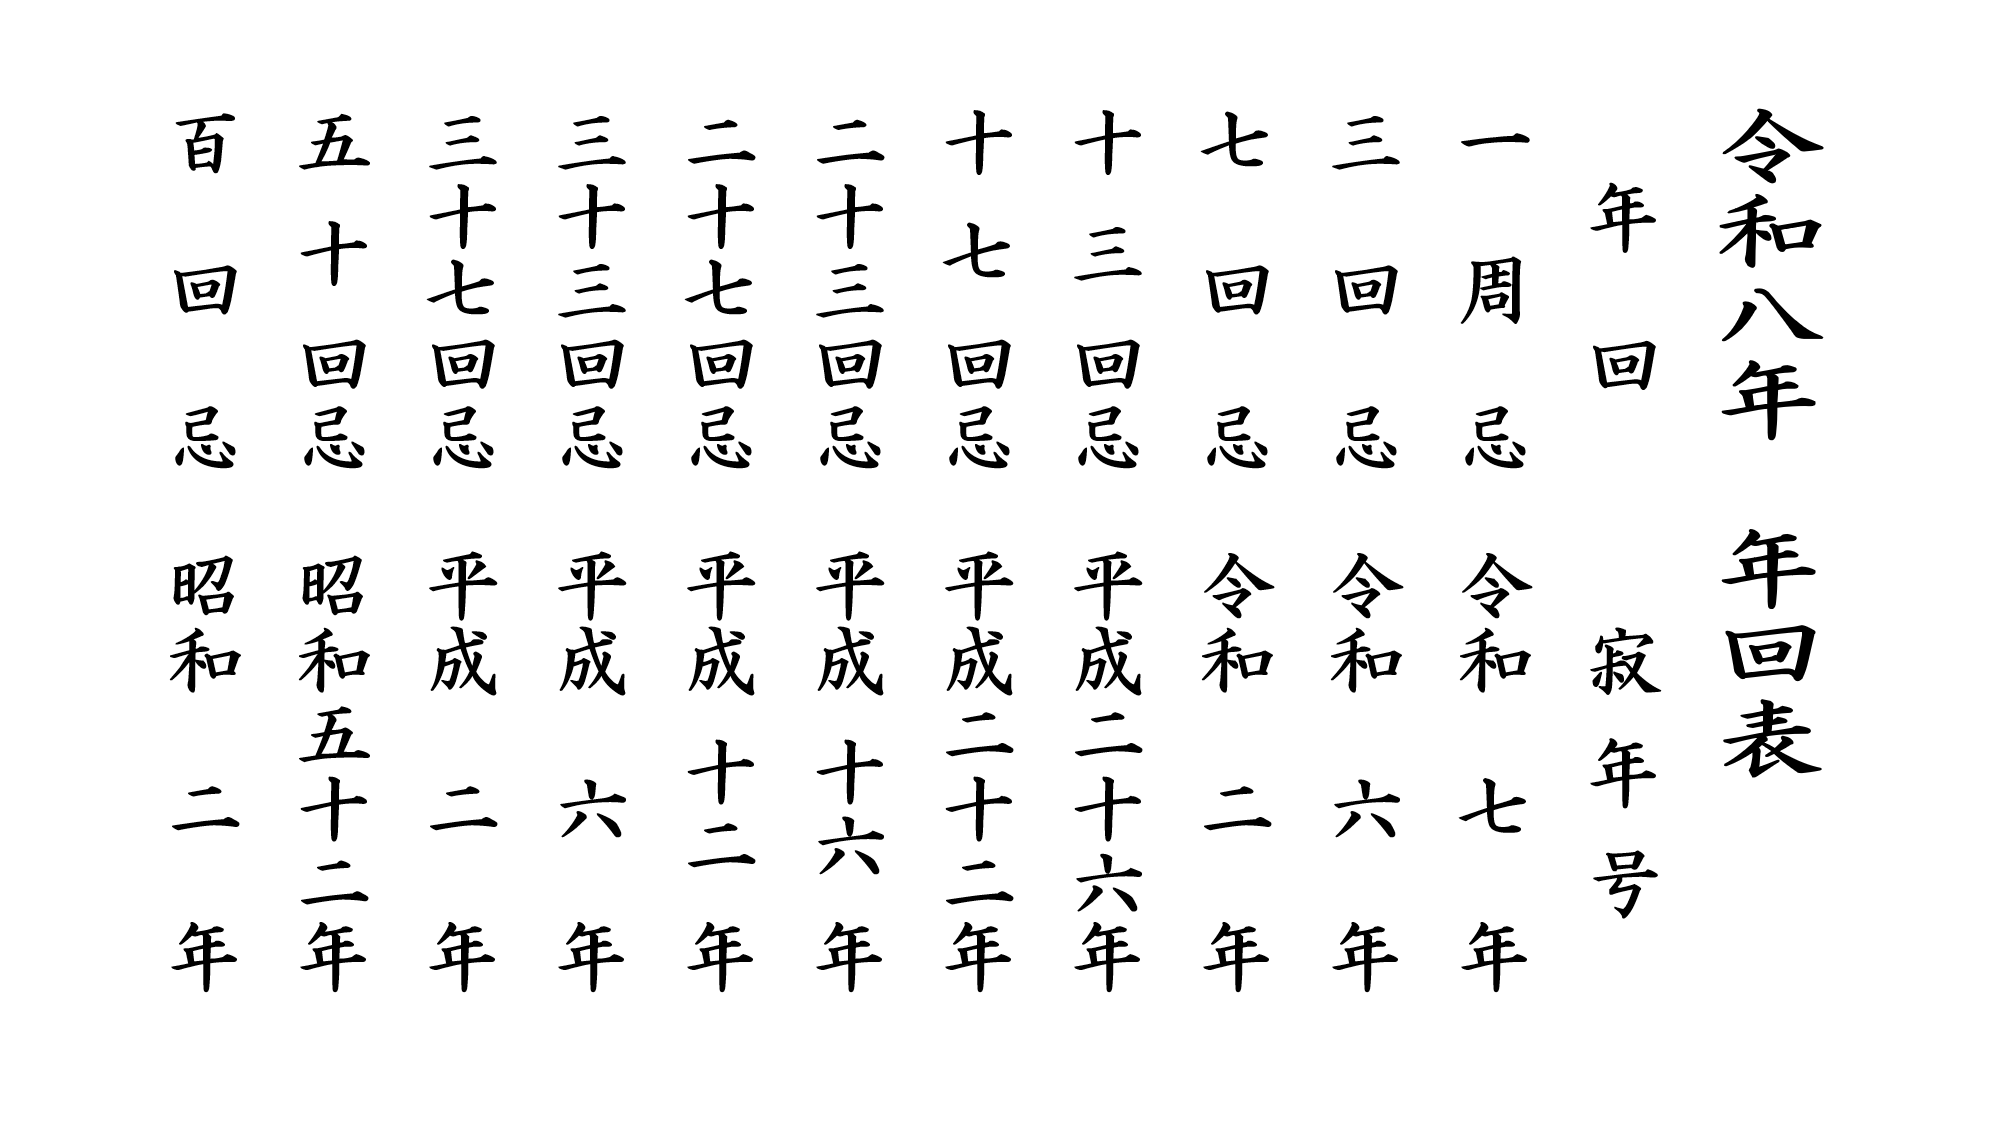 令和八年　年回表
年回　寂年号
一周忌　令和七年
三回忌　令和六年
七回忌　令和二年
十三回忌　平成二十六年
十七回忌　平成二十二年
二十三回忌　平成十六年
二十七回忌　平成十二年
三十三回忌　平成六年
三十七回忌　平成二年
五十回忌　昭和五十二年
百回忌　昭和二年